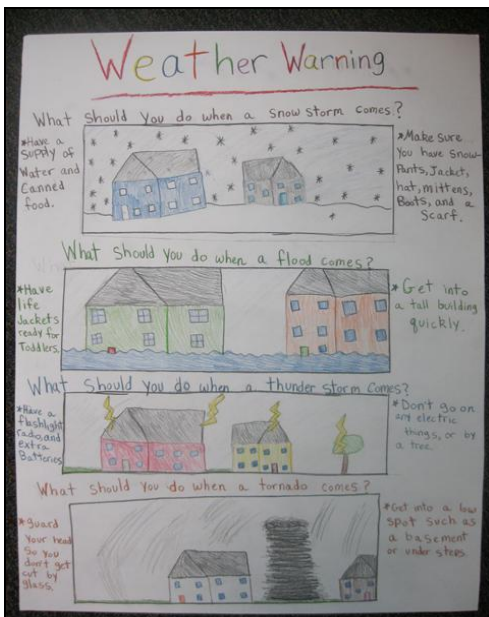 Weather Warning
What should You do when a snow storm comes?
*Have a
supply of
Water and
Canned
food.
*Make sure
You have snow-
Pants, Jacket,
hat, mittens,
Boots, and a
Scarf.
What should you do when a flood comes?
*Have
life
Jackets
ready for
Toddlers.
*Get into
a tall building
quickly.
What should you do when a thunder storm comes?
*Have a
flashlight
radio, and
extra
Batteries
*Don't go on
any electric
things, or by
a tree.
What should you do when a tornado comes?
*guard
your head
so you
don't get
cut by
glass.
*Get into a low
spot such as
a basement
or under steps.